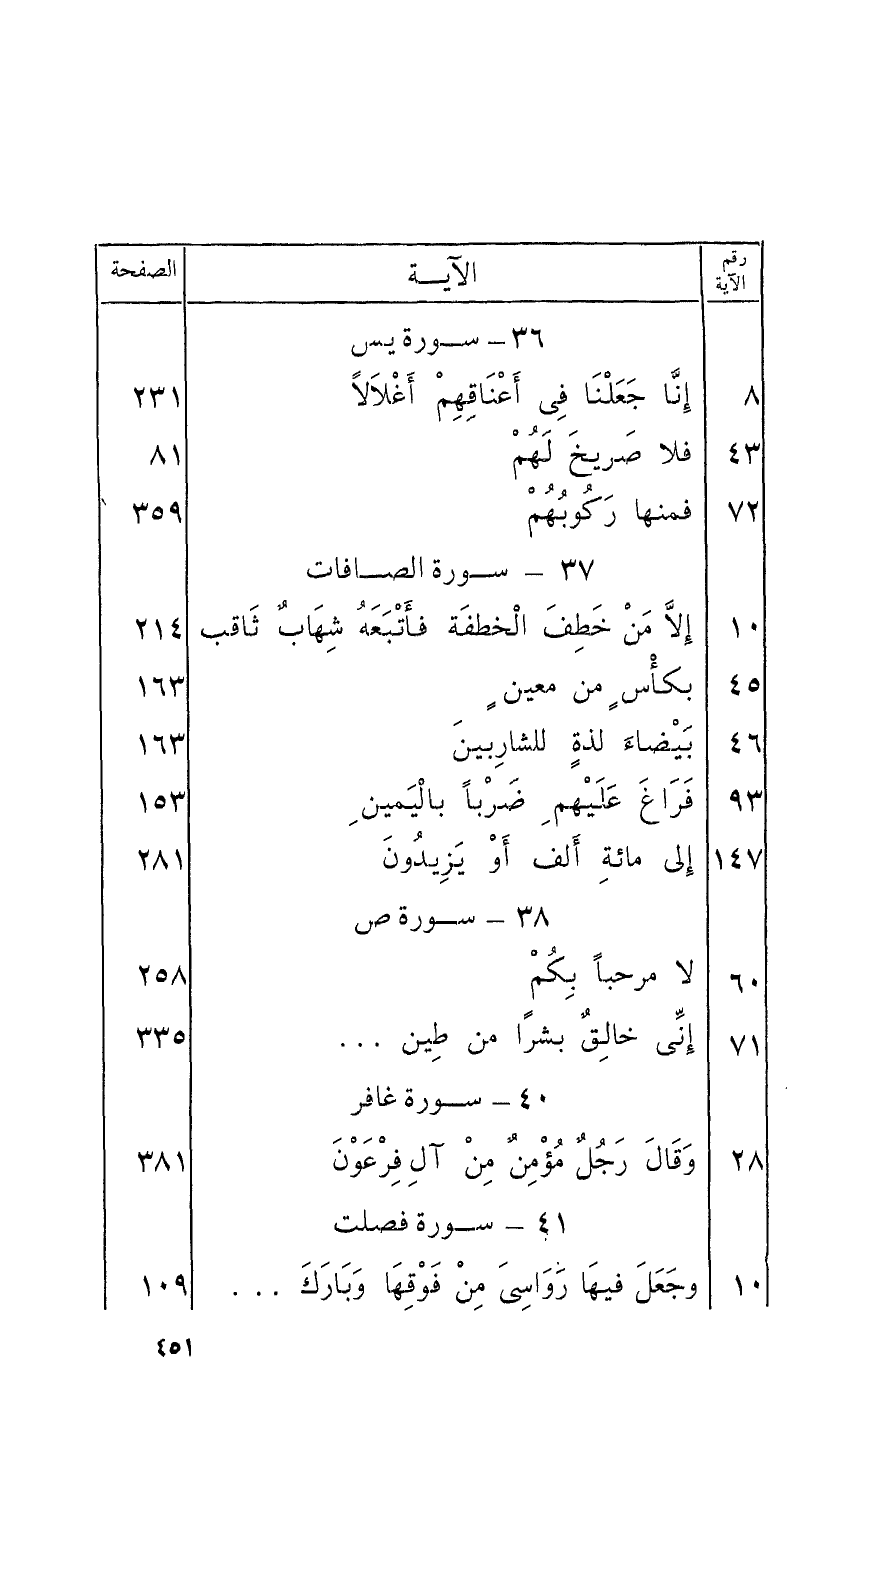 رقم الآية الآيـــة الصفحة
٣٦ – ســورة يس
٨ إِنَّا جَعَلْنَا فِى أَعْنَاقِهِمْ أَغْلَالاً ٢٣١
٤٣ فلا صَرِيخَ لَهُمْ ٨١
٧٢ فمنها رَكُوبُهُمْ ٣٥٩
٣٧ – ســورة الصــافات
١٠ إِلاَّ مَنْ خَطِفَ الْخطفَة فأَتْبَعَهُ شِهَابٌ ثَاقب ٢١٤
٤٥ بكأْسٍ من معينٍ ١٦٣
٤٦ بَيْضاءَ لذةٍ للشارِبينَ ١٦٣
٩٣ فَرَاغَ عَلَيْهمِ ضَرْباً بالْيَمينِ ١٥٣
١٤٧ إلى مائةِ أَلف أَوْ يَزِيدُونَ ٢٨١
٣٨ – ســورة ص
٦٠ لا مرحباً بِكُمْ ٢٥٨
٧١ إِنِّى خالقٌ بشرًا من طِين ... ٣٣٥
٤٠ – ســورة غافر
٢٨ وَقَالَ رَجُلٌ مُؤْمِنٌ مِنْ آلِ فِرْعَوْنَ ٣٨١
٤١ – ســورة فصلت
١٠ وجَعَلَ فيهَا رَوَاسِىَ مِنْ فَوْقِهَا وَبَارَكَ ... ١٠٩
٤٥١